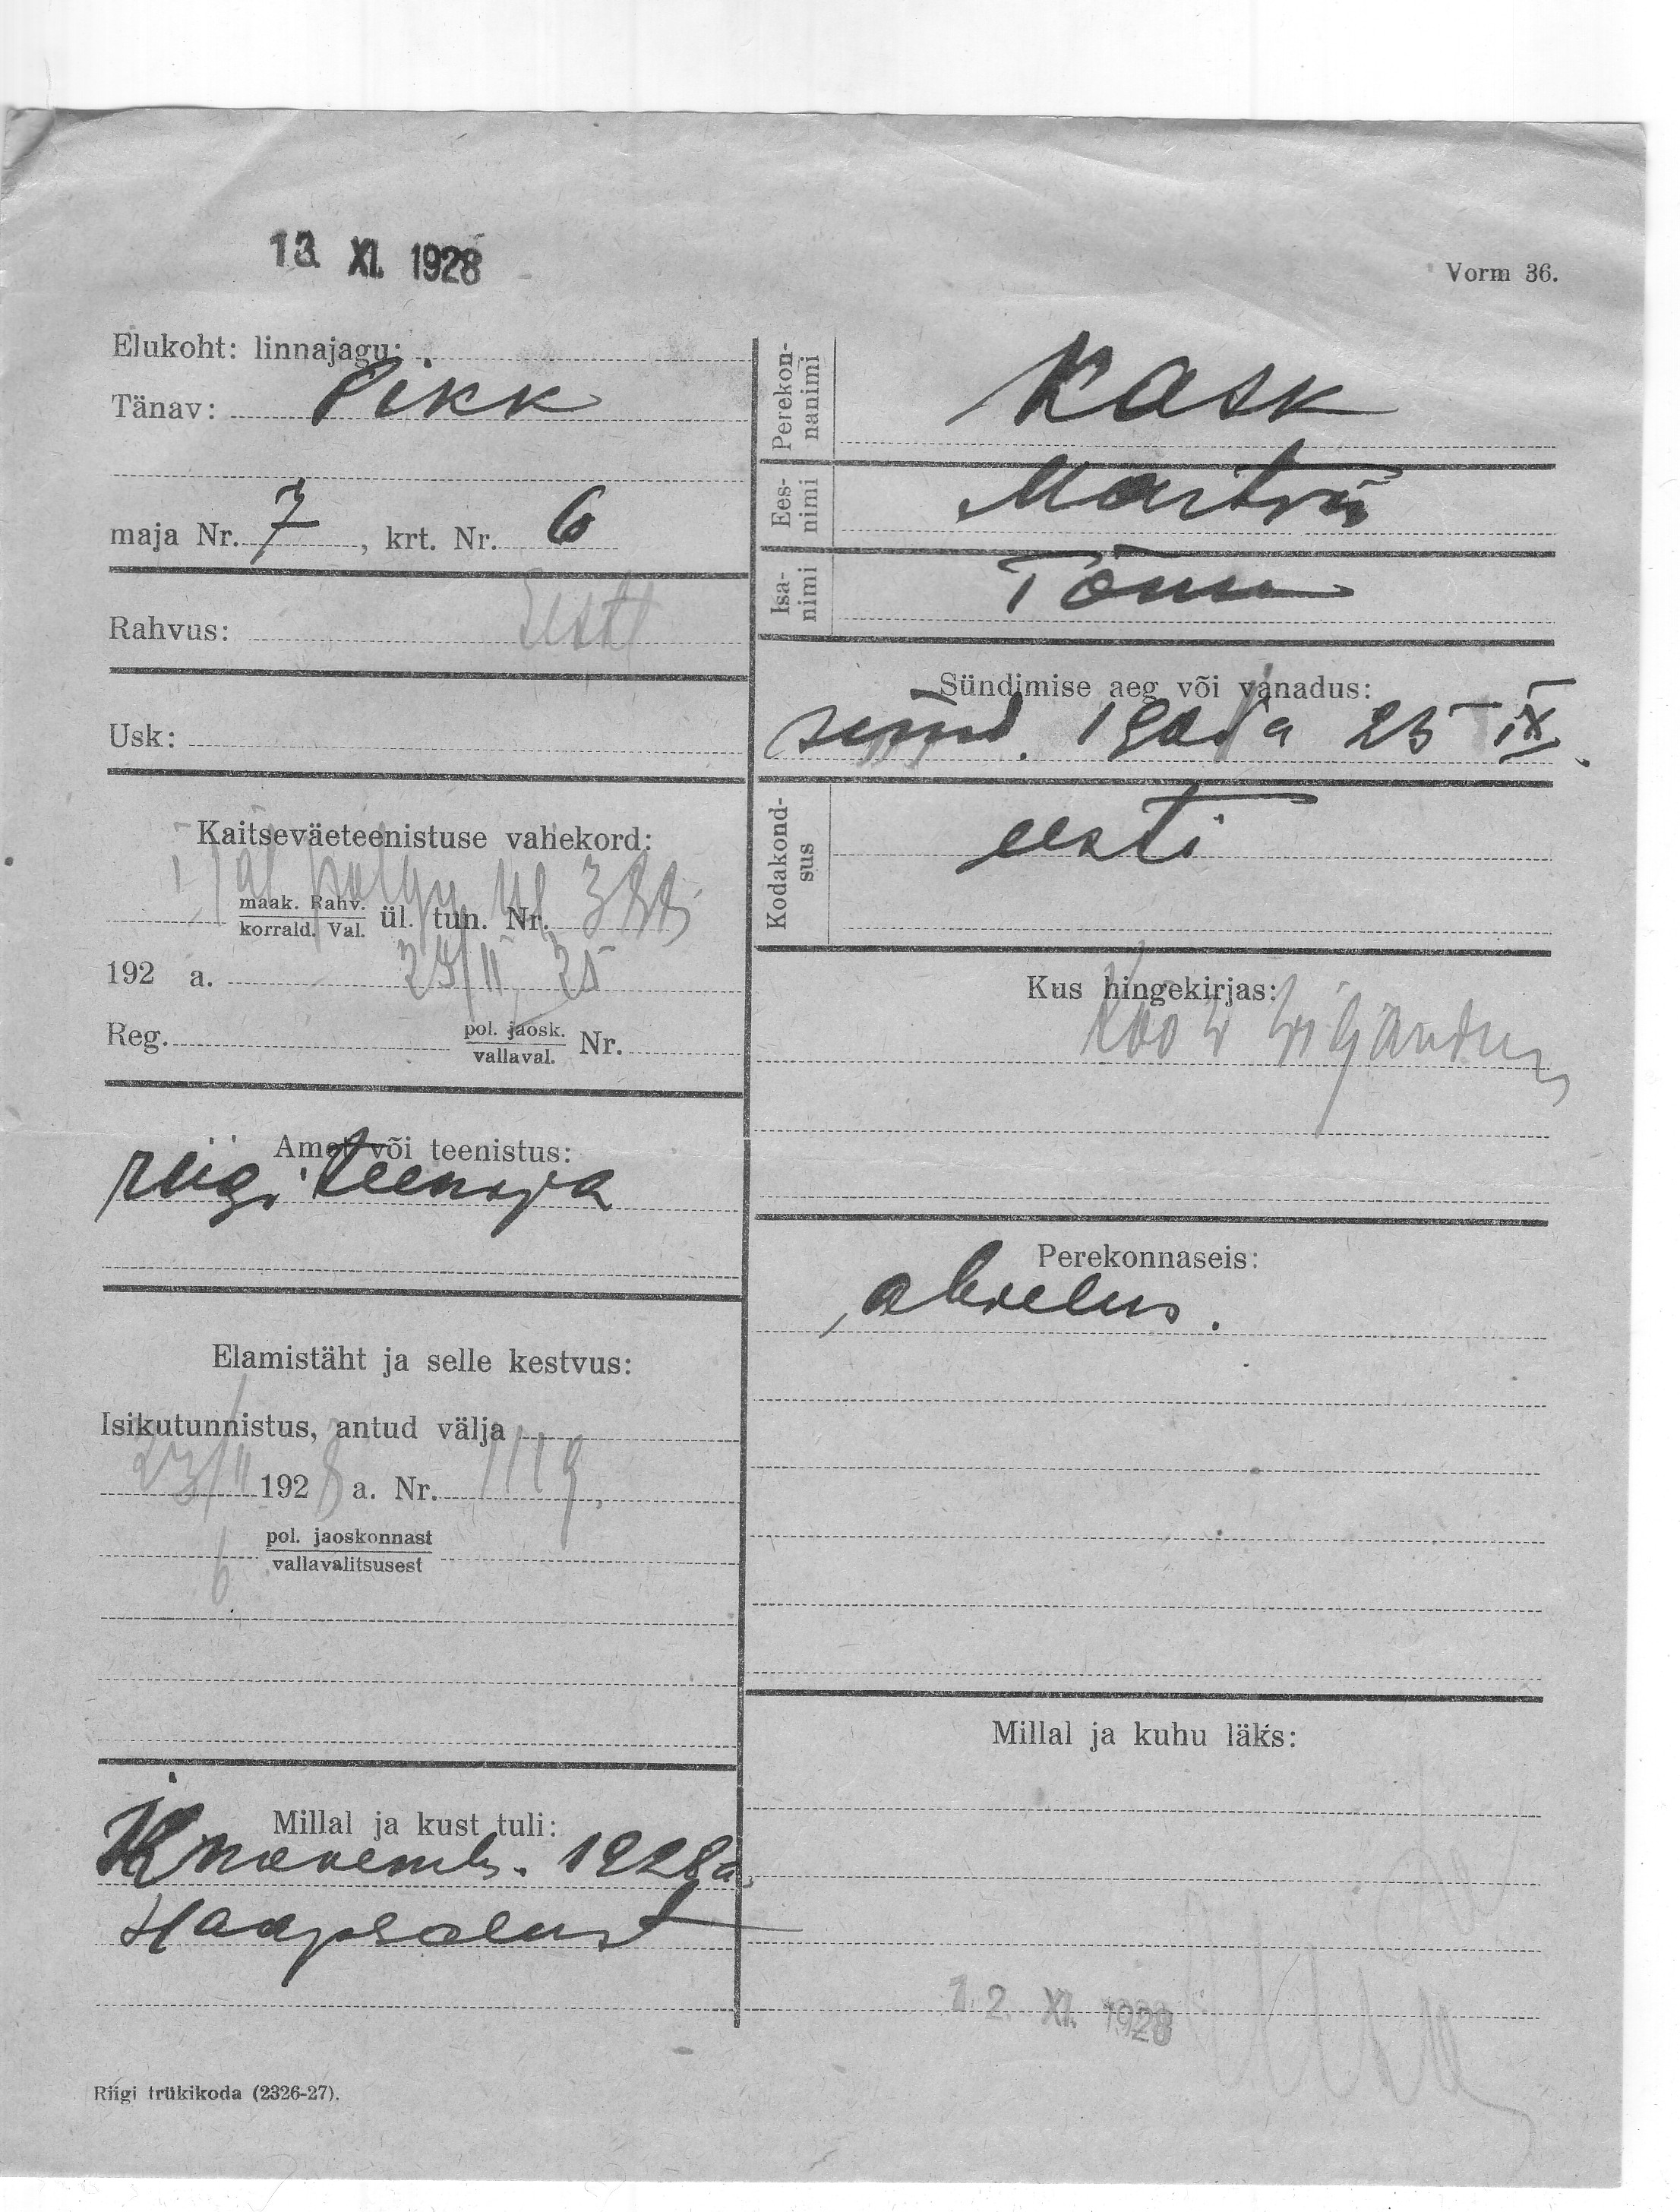 13. XI. 1928
Vorm 36.
Elukoht: linnajagu:
Tänav: Pikk
maja Nr. 7, krt. Nr. 6
Rahvus: Eesti
Usk:
Kaitseväeteenistuse vahekord:
maak. Rahv.
korrald. Val. ül. tun. Nr.
192 a. 25
Reg. pol. jaosk.
vallaval. Nr.
Amet või teenistus:
riigi teenija
Elamistäht ja selle kestvus:
Isikutunnistus, antud välja
23/II 1928 a. Nr. 1119,
6 pol. jaoskonnast
vallavalitsusest
Millal ja kust tuli:
novemb. 1928 a.
Haapsalust
Riigi trükikoda (2326-27).
Perekon-
nanimi Kask
Ees-
nimi Martin
Isa-
nimi Tõnu
Sündimise aeg või vanadus:
sünd. a 25 IX.
Kodakond-
sus eesti
Kus hingekirjas:
Perekonnaseis:
abielus.
Millal ja kuhu läks:
12. XI. 1928